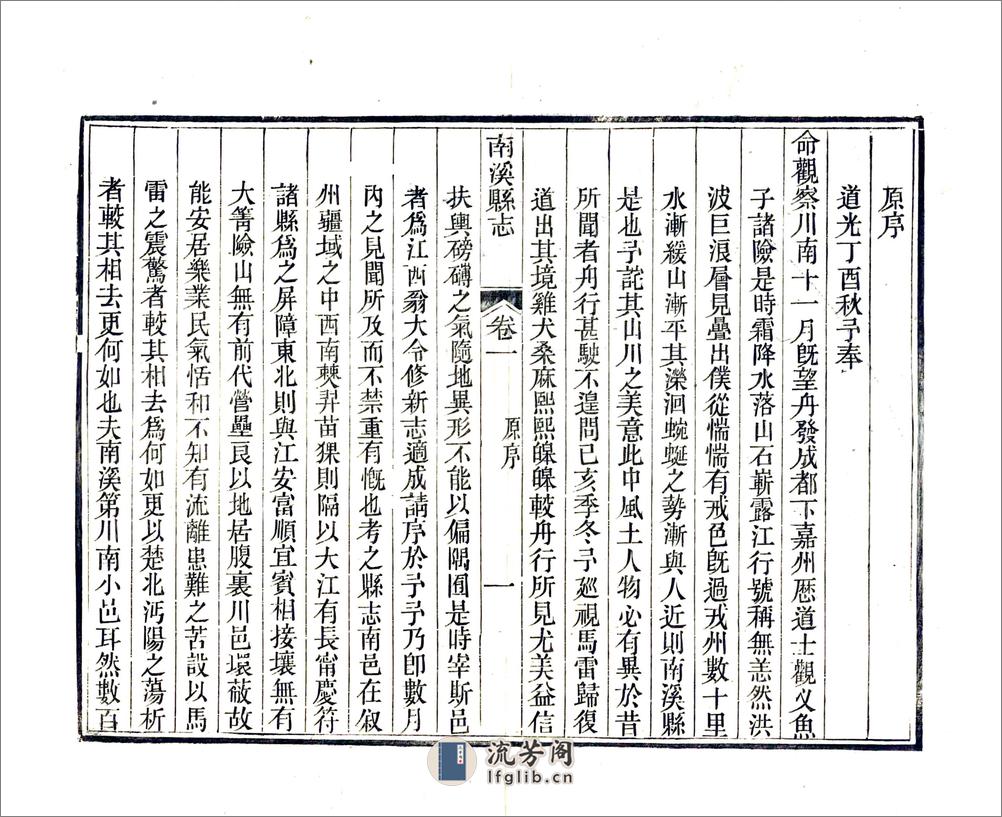 原序
道光丁酉秋予奉
命觀察川南十一月旣望舟發成都下嘉州歷道士觀义魚
子諸險是時霜降水落山石嶄露江行號稱無恙然洪
波巨浪層見疊出僕從惴惴有戒色旣過戎州數十里
水漸緩山漸平其濚洄蜿蜒之勢漸與人近則南溪縣
是也予詫其山川之美意此中風土人物必有異於昔
所聞者舟行甚駛不遑問己亥季冬予廵視馬雷歸復
道出其境雞犬桑麻熙熙皥皥較舟行所見尤美益信
南溪縣志 卷一 原序 一
扶輿磅礴之氣隨地異形不能以偏隅囿是時宰斯邑
者爲江西翁大令修新志適成請序於予予乃卽數月
內之見聞所及而不禁重有慨也考之縣志南邑在叙
州疆域之中西南僰羿苗猓則隔以大江有長甯慶符
諸縣爲之屏障東北則與江安富順宜賓相接壤無有
大箐險山無有前代營壘良以地居腹裏川邑環蔽故
能安居樂業民氣恬和不知有流離患難之苦設以馬
雷之震驚者較其相去爲何如更以楚北沔陽之蕩析
者較其相去更何如也夫南溪第川南小邑耳然數百
流芳阁
lfglib.cn